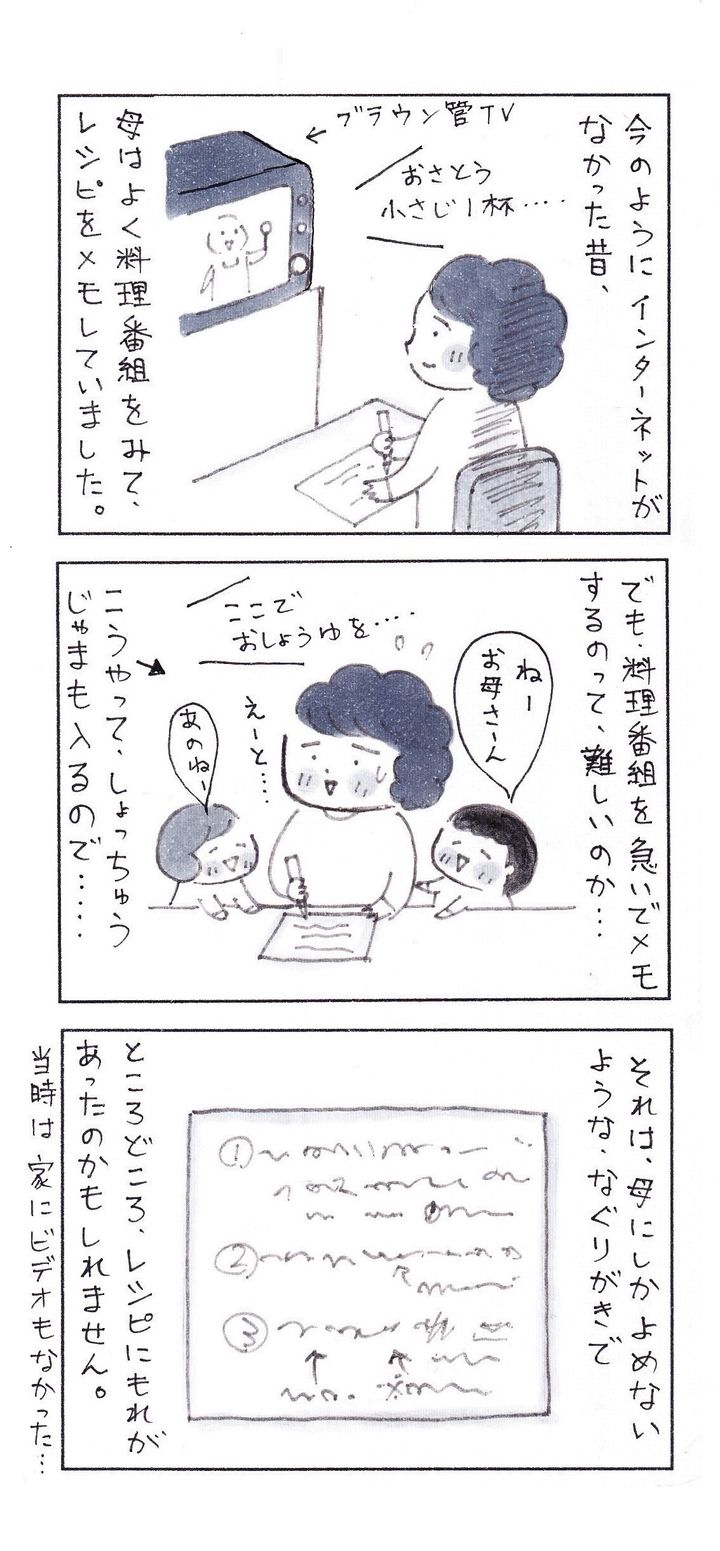 今のように インターネットが
なかった昔、
ブラウン管TV
おさとう
小さじ1杯‥‥
母はよく料理番組をみて、
レシピをメモしていました。
でも、料理番組を急いでメモ
するのって、難しいのか…
ねー
お母さーん
ここで
おしょうゆを‥‥
えーと‥‥
あのねー
こうやって、しょっちゅう
じゃまも入るので‥‥‥
それは、母にしか よめない
ような、なぐりがきで
①
②
③
※
ところどころ、レシピにもれが
あったのかもしれません。
当時は 家にビデオもなかった…